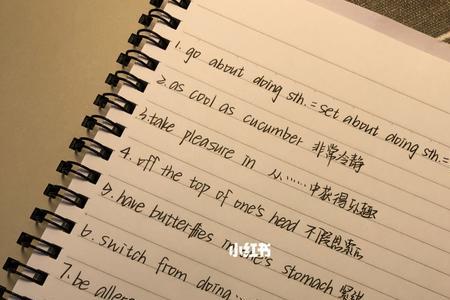 1. go about doing sth. = set about doing sth. =
2. as cool as cucumber 非常冷静
3. take pleasure in 从……中获得乐趣
4. off the top of one's head 不假思索
5. have butterflies in one's stomach 紧
6. switch from doing
7. be aller
小红书